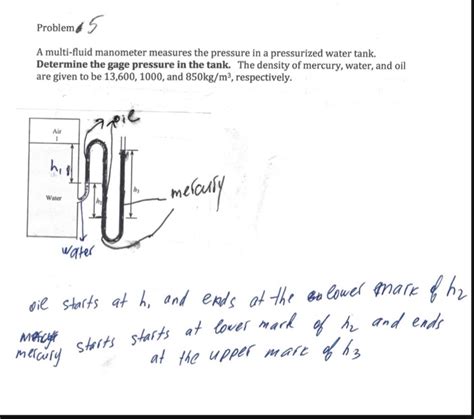 Problem 5
A multi-fluid manometer measures the pressure in a pressurized water tank.
Determine the gage pressure in the tank. The density of mercury, water, and oil
are given to be 13,600, 1000, and 850kg/m³, respectively.
oil
Air
1
h₁
Water
h₂
h₃
mercury
water
oil starts at h, and ends at the lower mark of h2
mercury starts starts at lower mark of h2 and ends
at the upper mark of h3